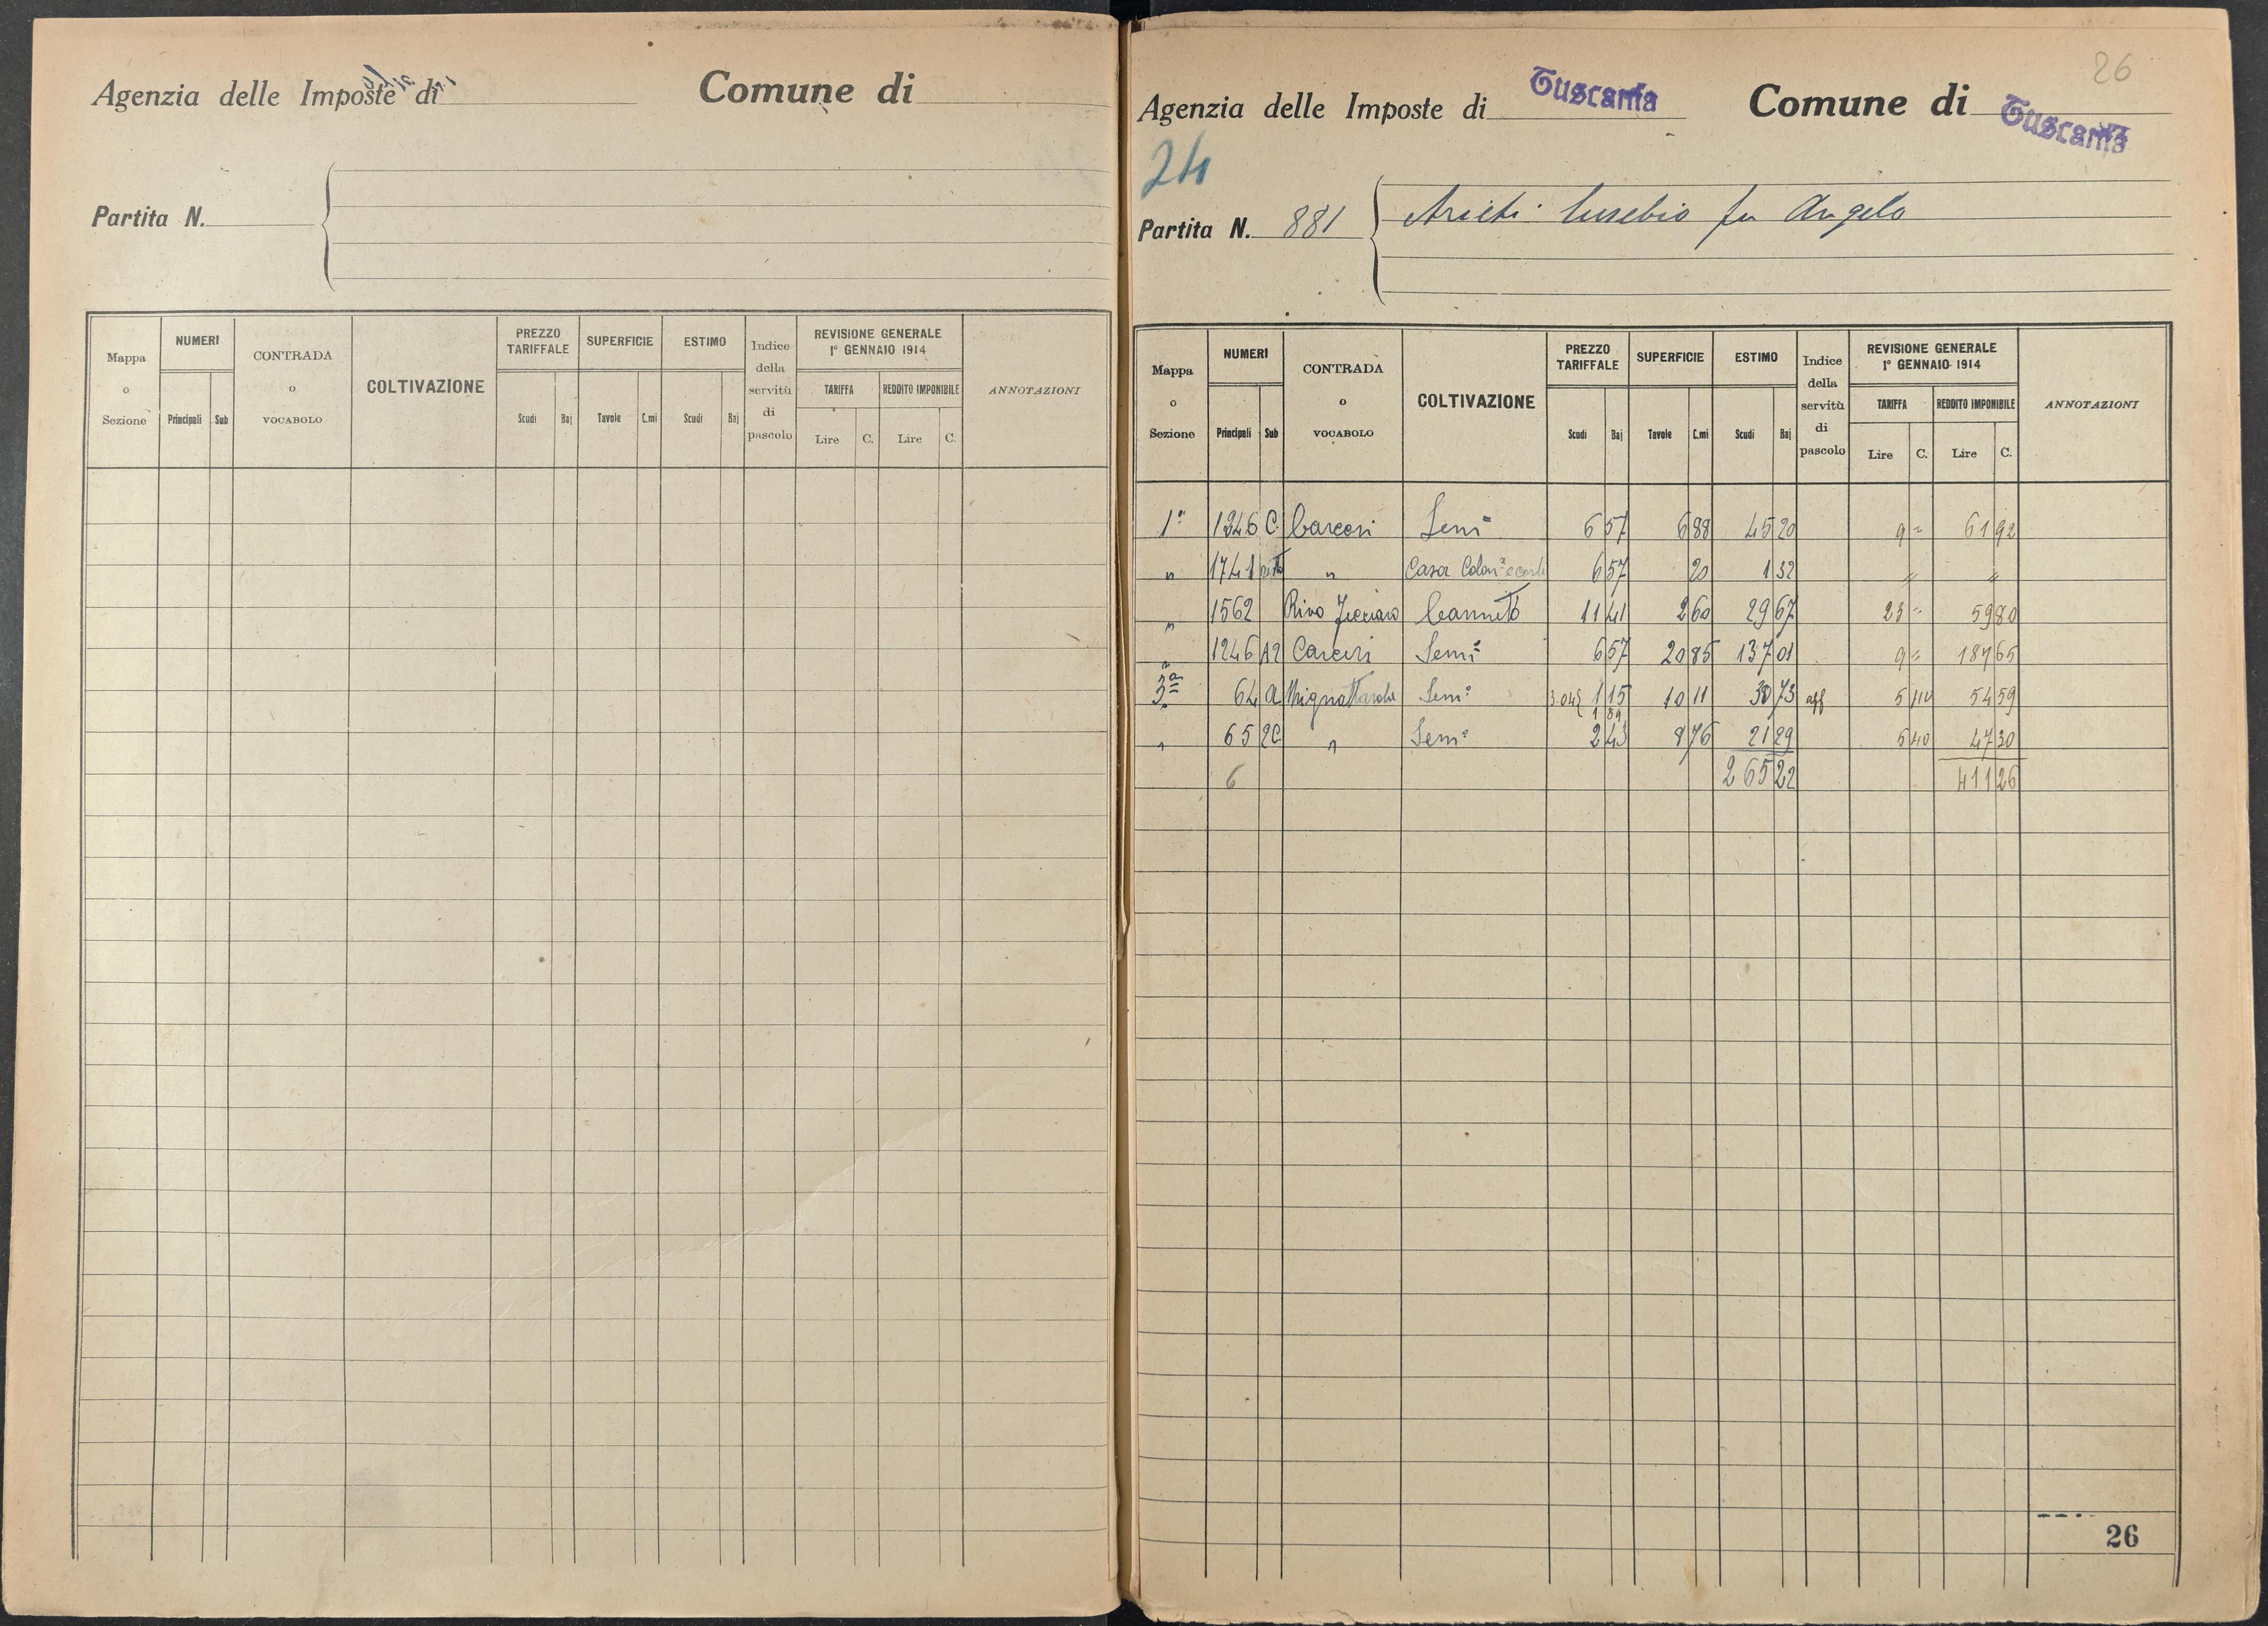 Agenzia delle Imposte di Comune di
Partita N.
Mappa o Sezione NUMERI Principali Sub CONTRADA o VOCABOLO COLTIVAZIONE PREZZO TARIFFALE Scudi Baj SUPERFICIE Tavole C.mi ESTIMO Scudi Baj Indice della servitù di pascolo REVISIONE GENERALE 1º GENNAIO 1914 TARIFFA Lire C. REDDITO IMPONIBILE Lire C. ANNOTAZIONI
26
Agenzia delle Imposte di Tuscania Comune di Tuscania
24
Partita N. 881 Arieti Eusebio fu Angelo
Mappa o Sezione NUMERI Principali Sub CONTRADA o VOCABOLO COLTIVAZIONE PREZZO TARIFFALE Scudi Baj SUPERFICIE Tavole C.mi ESTIMO Scudi Baj Indice della servitù di pascolo REVISIONE GENERALE 1º GENNAIO 1914 TARIFFA Lire C. REDDITO IMPONIBILE Lire C. ANNOTAZIONI
1ª C. Carceri Semº 6 57 6 88 45 20 9 = 61 92
" 1741 " Casa Colonª e corte 6 57 20 1 32 " "
" 1562 Rivo Canneto 11 41 2 60 29 67 23 = 59 80
" 1246 A2 Carceri Semº 6 57 20 85 137 01 9 = 187 65
3ª 64 a Semº 3.04 1 15 10 11 30 73 aff 5 40 54 59
1 89
" 65 2C " Semº 2 43 8 76 21 29 5 40 47 30
6 265 22 411 26
26